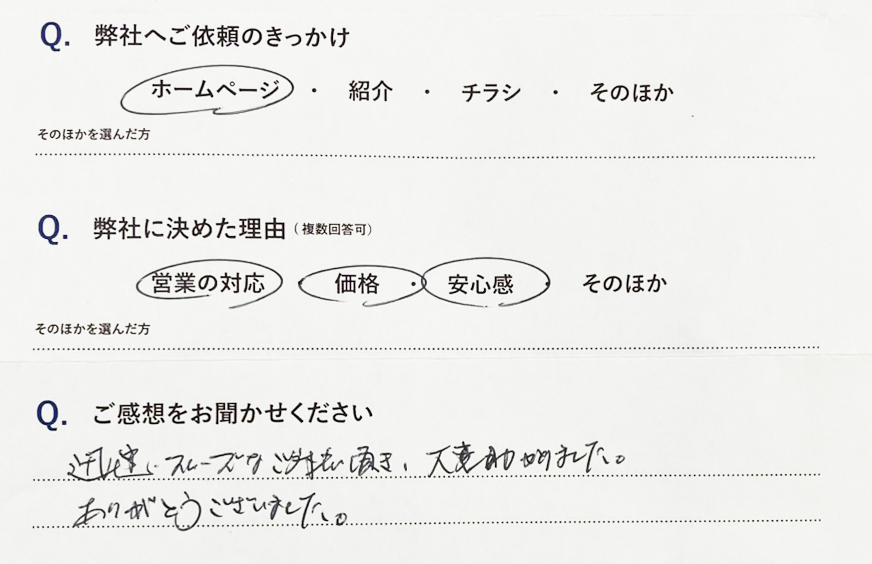 Q. 弊社へご依頼のきっかけ
ホームページ ・ 紹介 ・ チラシ ・ そのほか
そのほかを選んだ方
Q. 弊社に決めた理由（複数回答可）
営業の対応 ・ 価格 ・ 安心感 ・ そのほか
そのほかを選んだ方
Q. ご感想をお聞かせください
スムーズなご対応頂き、大変助かりました。
ありがとうございました。